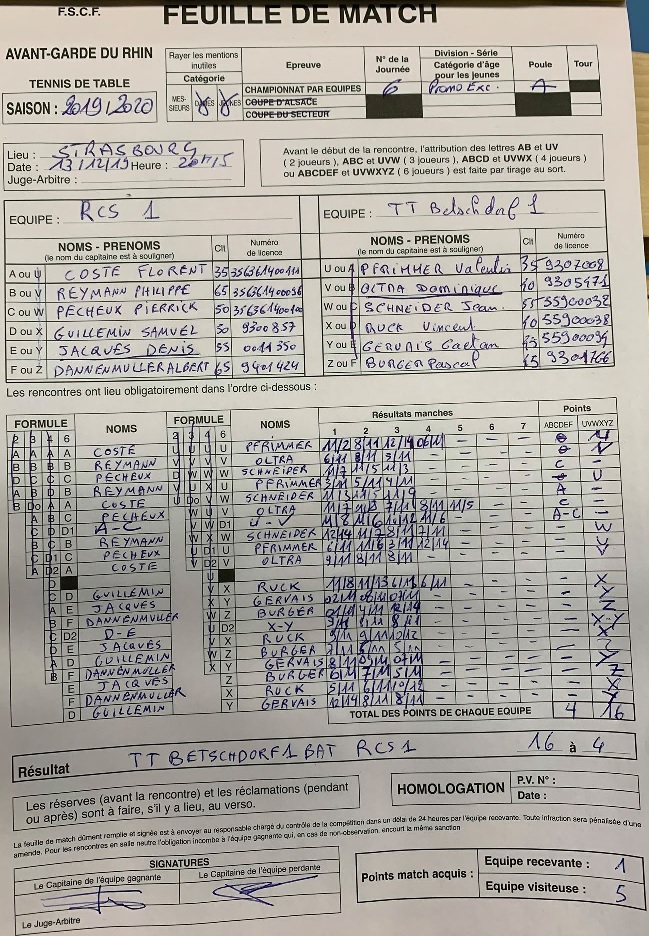 F.S.C.F. FEUILLE DE MATCH
AVANT-GARDE DU RHIN
TENNIS DE TABLE
SAISON : 2019/2020
Rayer les mentions inutiles
Catégorie
MESSIEURS DAMES JEUNES
Epreuve
CHAMPIONNAT PAR EQUIPES
COUPE D'ALSACE
COUPE DU SECTEUR
N° de la Journée
6
Division - Série
Catégorie d'âge pour les jeunes
Promo Exc.
Poule
A
Tour
Lieu : STRASBOURG
Date : 13/12/19 Heure : 20H15
Juge-Arbitre :
Avant le début de la rencontre, l'attribution des lettres AB et UV
( 2 joueurs ), ABC et UVW ( 3 joueurs ), ABCD et UVWX ( 4 joueurs )
ou ABCDEF et UVWXYZ ( 6 joueurs ) est faite par tirage au sort.
EQUIPE : RCS 1
EQUIPE : TT Betschdorf 1
NOMS - PRENOMS
(le nom du capitaine est à souligner)
Clt
Numéro de licence
NOMS - PRENOMS
(le nom du capitaine est à souligner)
Clt
Numéro de licence
A ou U COSTE FLORENT 35
B ou V REYMANN PHILIPPE 65
C ou W PECHEUX PIERRICK 50
D ou X GUILLEMIN SAMUEL 50 9300857
E ou Y JACQUES DENIS 55 0011350
F ou Z DANNENMULLER ALBERT 65 9401424
U ou A PERIMMER Valentin 35 9307008
V ou B OLTRA Dominique 40 9305471
W ou C SCHNEIDER Jean 55 55900032
X ou D RUCK Vincent 40 55900038
Y ou E GERVAIS Gaetan 55900034
Z ou F BURGER Pascal 65 9301766
Les rencontres ont lieu obligatoirement dans l'ordre ci-dessous :
FORMULE NOMS FORMULE NOMS Résultats manches Points
2 3 4 6 2 3 4 6 1 2 3 4 5 6 7 ABCDEF UVWXYZ
COSTE PERIMMER 11/2 8/11 12/14 06/11
REYMANN OLTRA 6/11 8/11 3/11
PECHEUX SCHNEIDER 11/7 11/5 11/3 C
REYMANN PERIMMER 3/11 5/11 4/11 U
COSTE SCHNEIDER A
PECHEUX OLTRA 8/11 11/5 C
A-C U-V 11/8 11/6 11/6 A-C
REYMANN SCHNEIDER 12/14 11/7 8/11 7/11 W
PECHEUX PERIMMER 6/11 11/6 3/11 12/14 U
COSTE OLTRA 9/11 8/11 8/11 V
GUILLEMIN RUCK 11/8 11/13 6/11 X
JACQUES GERVAIS 02/11 06/11 07/11 Y
DANNENMULLER BURGER 4/11 12/14 Z
D-E X-Y 8/11 X-Y
JACQUES RUCK 9/11 9/11 10/12 X
GUILLEMIN BURGER
DANNENMULLER GERVAIS 8/11 07/11 Y
JACQUES BURGER 6/11 7/11 5/11 Z
DANNENMULLER RUCK 5/11 6/11 10/12 X
GUILLEMIN GERVAIS 12/14 8/11 8/11 Y
TOTAL DES POINTS DE CHAQUE EQUIPE 4 16
Résultat TT BETSCHDORF 1 BAT RCS 1 16 à 4
Les réserves (avant la rencontre) et les réclamations (pendant
ou après) sont à faire, s'il y a lieu, au verso.
HOMOLOGATION
P.V. N° :
Date :
La feuille de match dûment remplie et signée est à envoyer au responsable chargé du contrôle de la compétition dans un délai de 24 heures par l'équipe recevante. Toute infraction sera pénalisée d'une
amende. Pour les rencontres en salle neutre l'obligation incombe à l'équipe gagnante qui, en cas de non-observation, encourt la même sanction
SIGNATURES
Le Capitaine de l'équipe gagnante Le Capitaine de l'équipe perdante
Le Juge-Arbitre
Points match acquis :
Equipe recevante : 1
Equipe visiteuse : 5